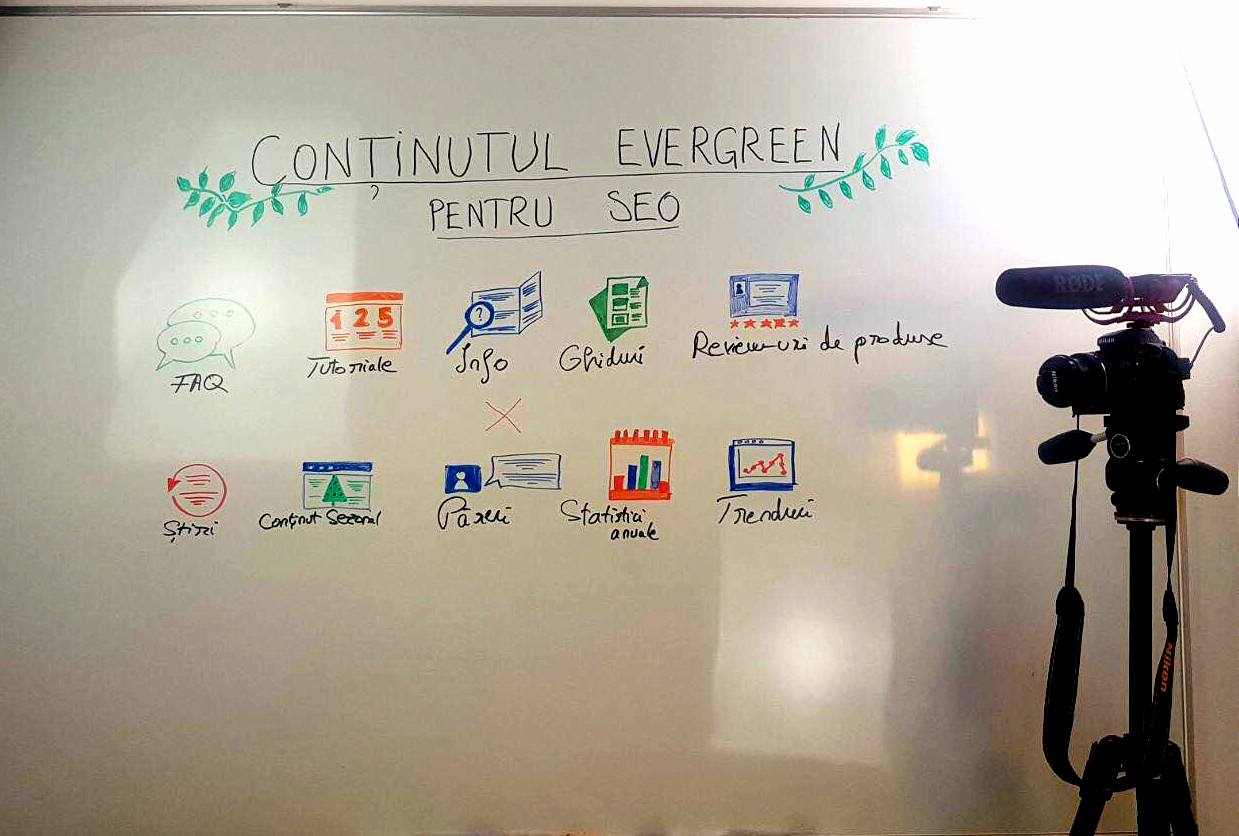 CONȚINUTUL EVERGREEN
PENTRU SEO
FAQ
1 2 5
Tutoriale
?
Info
Ghiduri
Review-uri de produse
Știri
Conținut Sezonal
Păreri
Statistici
anuale
Trenduri
RØDE
Nikon
Nikon
Nikon